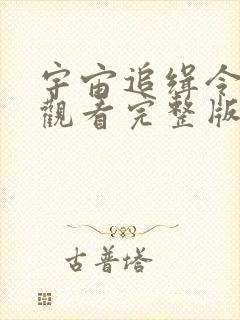 宇宙追缉令
觀看完整版
古普塔